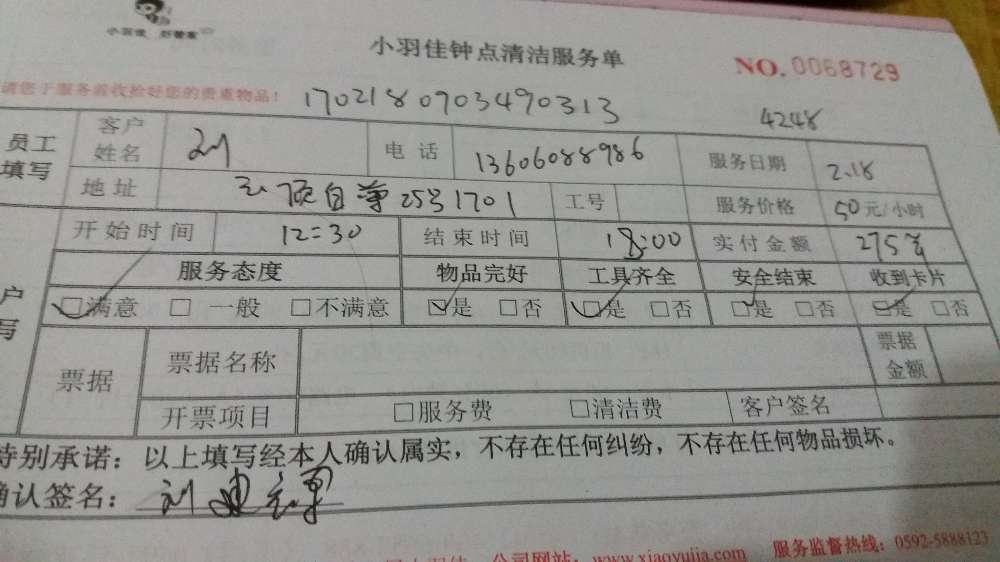 小羽佳 好管家
小羽佳钟点清洁服务单
NO.0068729
请您于服务前收捡好您的贵重物品！
1702180903490313
4248
员工填写 客户姓名 刘 电话 13606088986 服务日期 2.18
地址 25号1701 工号 服务价格 50元/小时
开始时间 12:30 结束时间 18:00 实付金额 275元
服务态度 物品完好 工具齐全 安全结束 收到卡片
户写 ☑满意 □一般 □不满意 ☑是 □否 ☑是 □否 ☑是 □否 ☑是 □否
票据 票据名称 票据金额
开票项目 □服务费 □清洁费 客户签名
特别承诺：以上填写经本人确认属实，不存在任何纠纷，不存在任何物品损坏。
确认签名：刘
公司网站：www.xiaoyujia.com 服务监督热线：0592-5888123